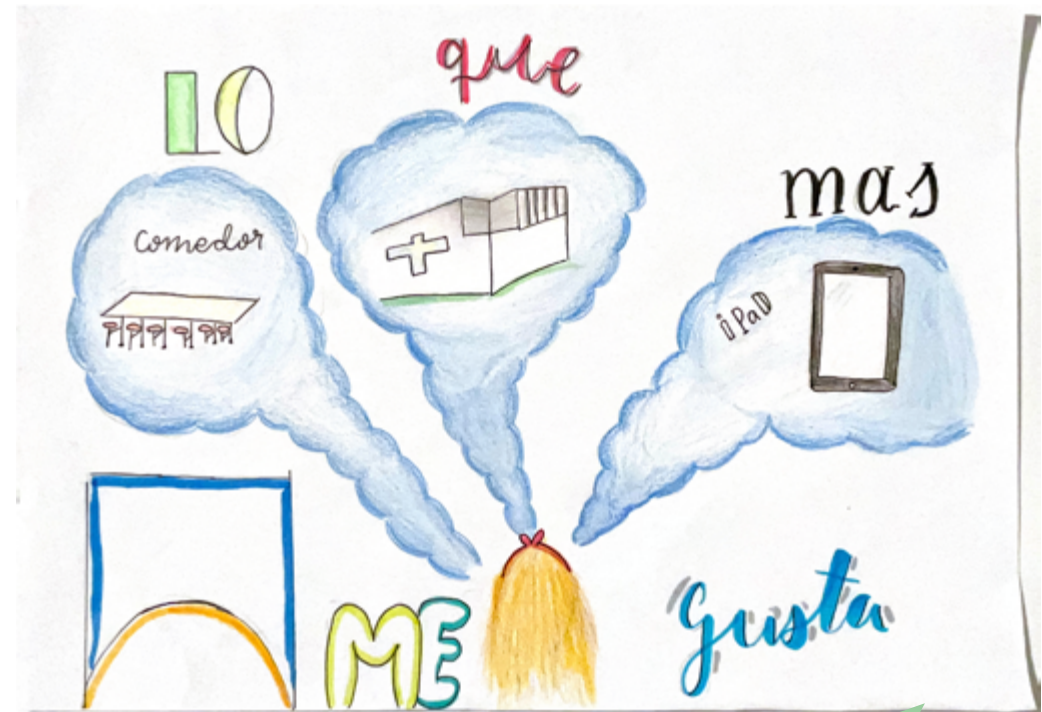 LO
que
mas
comedor
iPaD
ME
gusta